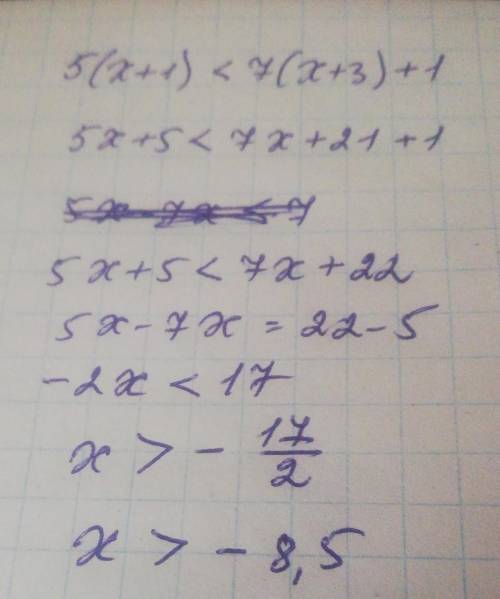 5(x+1) < 7(x+3)+1
5x+5 < 7x+21+1
5x+5 < 7x+22
5x-7x = 22-5
-2x < 17
x > - 17/2
x > - 8,5